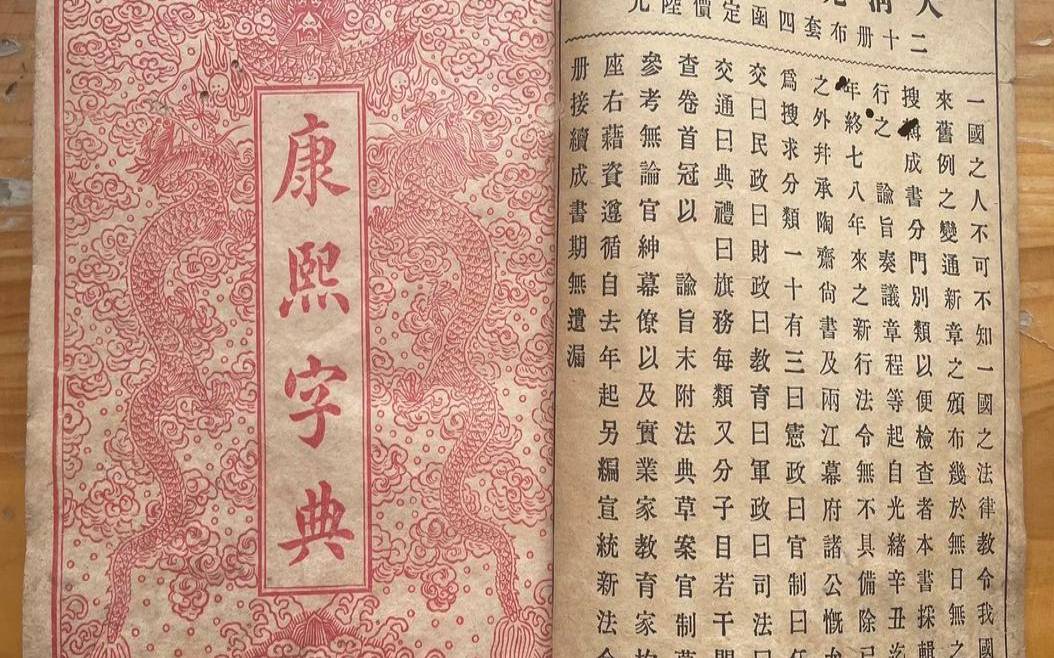 二十册布套四函定價陸元
一國之人不可不知一國之法律教令我國
來舊例之變通新章之頒布幾於無日無之
搜成書分門別類以便檢查者本書採輯
行之　諭旨奏議章程等起自光緒辛丑迄
年終七八年來之新行法令無不具備除已
之外幷承陶齋尙書及兩江幕府諸公慨
爲搜求分類一十有三曰憲政曰官制曰任
交曰民政曰財政曰教育曰軍政曰司法曰
交通曰典禮曰旗務每類又分子目若干門
查卷首冠以　諭旨末附法典草案官制草
參考無論官紳幕僚以及實業家教育家均
座右藉資遵循自去年起另編宣統新法令
册接續成書期無遺漏
康熙字典